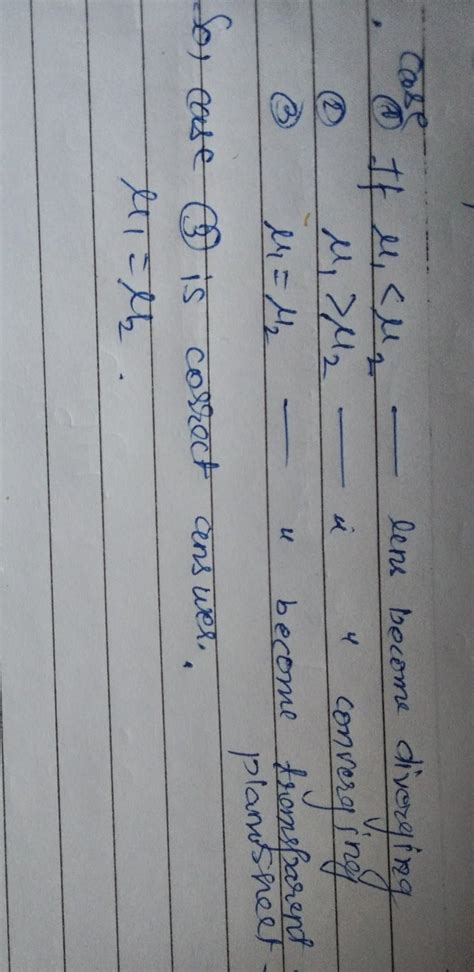 Case
① If μ₁ < μ₂ — lens become diverging
② μ₁ > μ₂ — " " converging
③ μ₁ = μ₂ — " become transparent
plansheet
So, case ③ is correct answer.
μ₁ = μ₂.